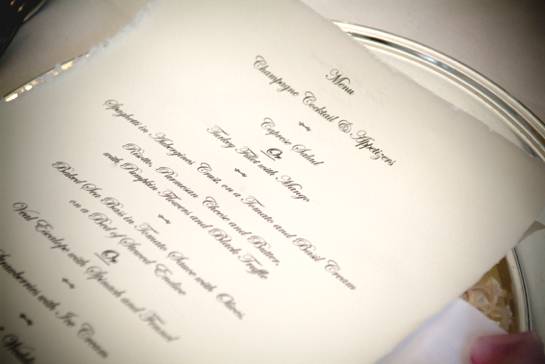 Menu
Champagne Cocktail & Appetizers
Caprese Salad
Or
Turkey Fillet with Mango
Spaghetti in Aubergines Cass, on a Tomato and Basil Cream
Risotto, Parmesan Cheese and Butter,
with Pumpkin Flowers and Black Truffle
Baked Sea Bass in Tomato Sauce with Olives,
on a Bed of Stewed Endive
Or
Veal Envelope with Spinach and Fennel
Strawberries with Ice Cream